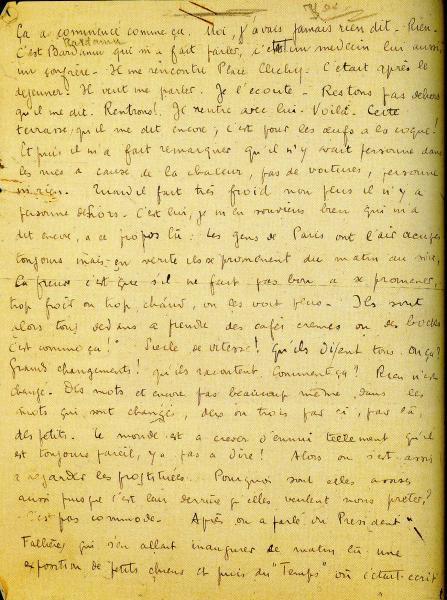 Ça a commencé comme ça. Moi, j'avais jamais rien dit. Rien.
Bardamu
C'est Bardamu qui m'a fait parler, c'était un médecin lui aussi,
un confrère. Il me rencontre Place Clichy. C'était après le
déjeuner. Il veut me parler. Je l'écoute. Restons pas dehors
qu'il me dit. Rentrons! Je rentre avec lui. Voilà. Cette
terrasse, qu'il me dit encore, c'est pour les œufs à la coque!
Et puis il m'a fait remarquer qu'il n'y avait personne dans
les rues à cause de la chaleur, pas de voitures, personne
ni rien. Quand il fait très froid non plus il n'y a
personne dehors. C'est lui, je m'en souviens bien qui m'a
dit encore, à ce propos là: Les gens de Paris ont l'air occupés
toujours mais en vérité ils se promènent du matin au soir,
La preuve c'est que s'il ne fait pas bon à se promener,
trop froid ou trop chaud, on les voit plus. Ils sont
alors tous dedans à prendre des cafés crèmes ou des bocks
C'est comme ça! Siècle de vitesse! Qu'ils disent tous. Où ça?
Grands changements! qu'ils racontent. Comment ça? Rien n'est
changé. Des mots et encore pas beaucoup même, dans les
mots qui sont changés, deux ou trois par ci, par là,
des petits. Le monde est à crever d'ennui tellement qu'il
est toujours pareil, y a pas à dire! Alors on s'est assis
à regarder les prostituées. Pourquoi sont elles assises
aussi puisque c'est leur derrière qu'elles veulent nous prêter?
C'est pas commode. Après on a parlé du Président
Fallières qui s'en allait inaugurer ce matin là une
exposition de petits chiens et puis du "Temps" où c'était écrit